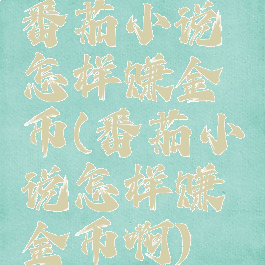 番茄小说
怎样赚金
币(番茄小
说怎样赚
金币啊)